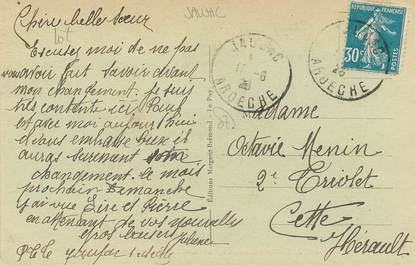 Chère belle Sœur
JAUJAC
Excusez moi de ne pas
avoir fait savoir avant
mon changement. Je suis
très contente ici Paul
est avec moi aujourd'hui
vous embrasse
auras surement son
changement le mois
prochain Dimanche
Lise et Pierre
en attendant de vos nouvelles
gros baisers
Éditions Margerit-Brémond - Le Puy
JAUJAC
ARDECHE
REPUBLIQUE FRANÇAISE
POSTES
30c
ARDECHE
Madame
Octavie Menin
2e Triolet
Cette
Hérault